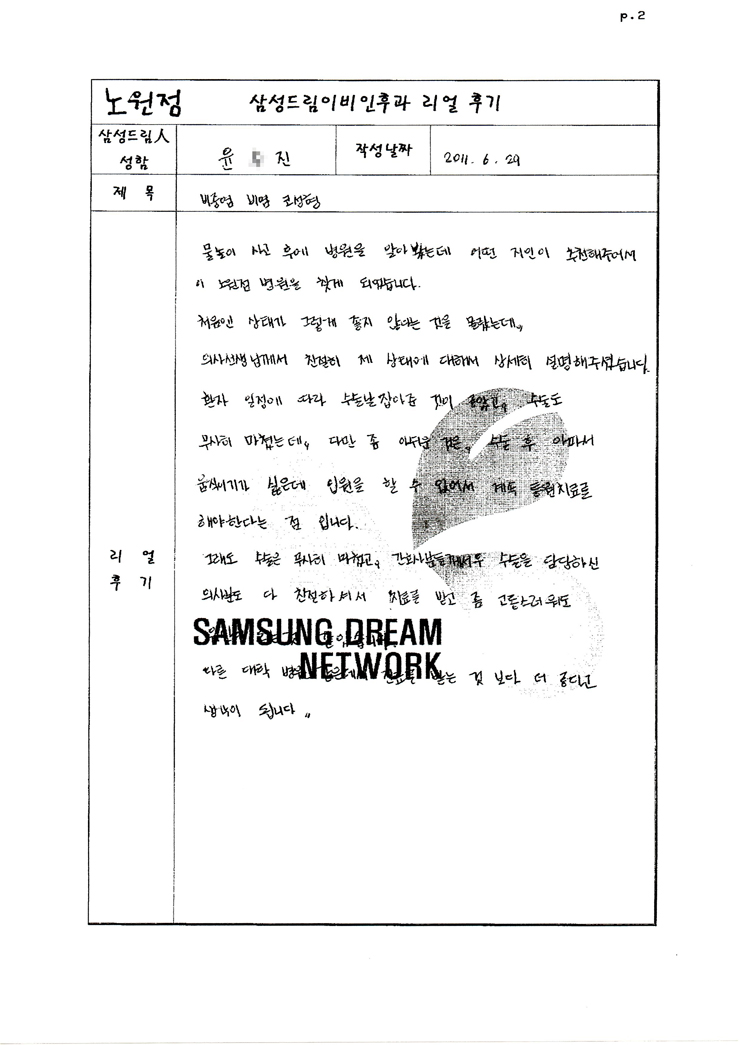 p.2
노원점 삼성드림이비인후과 리얼 후기
삼성드림人 성함 윤 진 작성날짜 2011. 6. 29
제 목 비중염 비염 코성형
물놀이 사고 후에 병원을 알아봤는데 어떤 지인이 추천해주어서
이 노원점 병원을 찾게 되었습니다.
처음엔 상태가 그렇게 좋지 않다는 것을 몰랐는데,
의사선생님께서 친절히 제 상태에 대해서 상세히 설명해주셨습니다.
환자 일정에 따라 수술날 잡아준 것이 좋았고, 수술도
무사히 마쳤는데, 다만 좀 아쉬운 것은, 수술 후 아파서
움직이기가 싫은데 입원을 할 수 없어서 계속 통원치료를
해야한다는 점 입니다.
리얼 후기
그래도 수술은 무사히 마쳤고, 간호사분들께서우 수술을 담당하신
의사분도 다 친절하셔서 치료를 받고 좀 고통스러워도
SAMSUNG DREAM
NETWORK
다른 대학 병원 받는 것 보다 더 좋다고
생각이 됩니다.